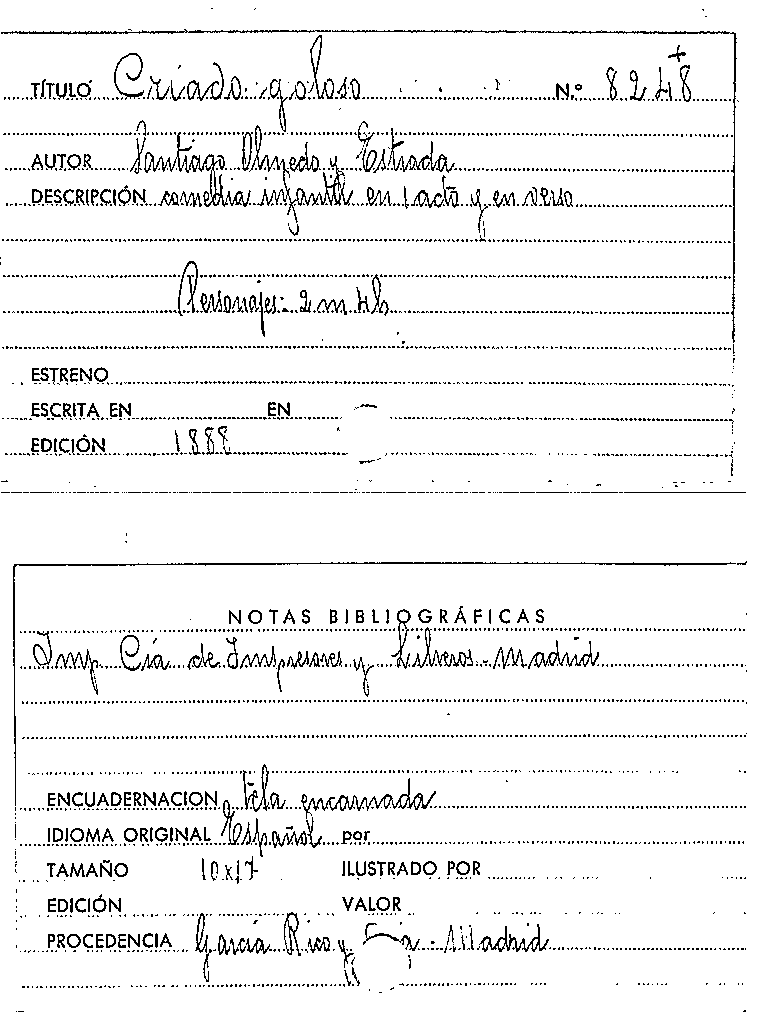 TÍTULO Criado goloso N.º 8248
AUTOR Santiago Olmedo y Estrada
DESCRIPCIÓN comedia infantil en 1 acto y en verso
Personajes: 2 m 4 h
ESTRENO
ESCRITA EN EN
EDICIÓN 1888
NOTAS BIBLIOGRÁFICAS
Imp Cía de Impresores y Libreros - Madrid
ENCUADERNACION tela encarnada
IDIOMA ORIGINAL Español por
TAMAÑO 10x17 ILUSTRADO POR
EDICIÓN VALOR
PROCEDENCIA García Rico y Cía - Madrid